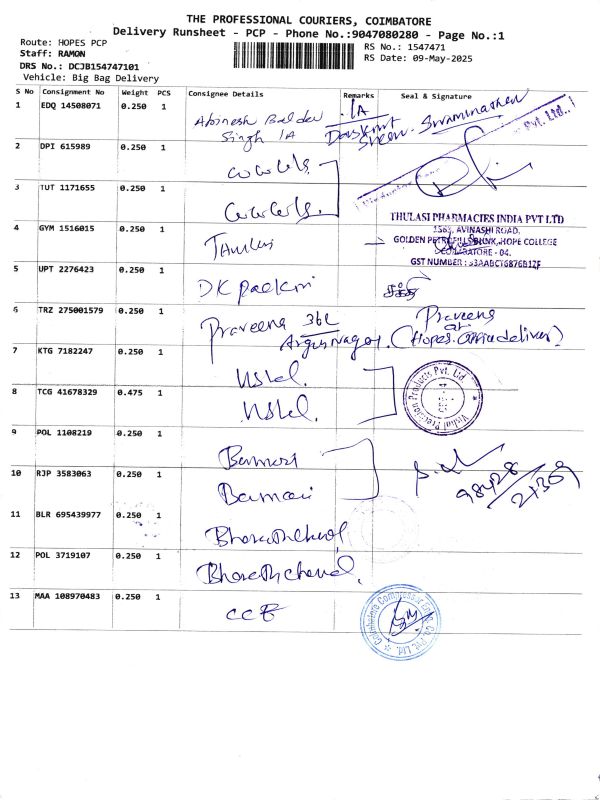 THE PROFESSIONAL COURIERS, COIMBATORE
Delivery Runsheet - PCP - Phone No.:9047080280 - Page No.:1
Route: HOPES PCP
RS No.: 1547471
Staff: RAMON
RS Date: 09-May-2025
DRS No.: DCJB154747101
Vehicle: Big Bag Delivery
S No Consignment No Weight PCS Consignee Details Remarks Seal & Signature
1 EDQ 14508071 0.250 1 Singh 1A 1A
Pvt. Ltd.
2 DPI 615989 0.250 1
3 TUT 1171655 0.250 1
THULASI PHARMACIES INDIA PVT LTD
4 GYM 1516015 0.250 1
1568, AVINASHI ROAD,
GOLDEN PETROFILLS BUNK, HOPE COLLEGE
COIMBATORE - 04.
GST NUMBER : 33AABCT6876B1ZF
5 UPT 2276423 0.250 1 DK
6 TRZ 275001579 0.250 1 Praveena 36L Praveena
7 KTG 7182247 0.250 1
Precision Products Pvt. Ltd.
8 TCG 41678329 0.475 1
9 POL 1108219 0.250 1 Bamari
10 RJP 3583063 0.250 1 Bamari
98428
21309
11 BLR 695439977 0.250 1
12 POL 3719107 0.250 1
13 MAA 108970483 0.250 1 CCE
Coimbatore Compressor Engg. Co. Pvt. Ltd.